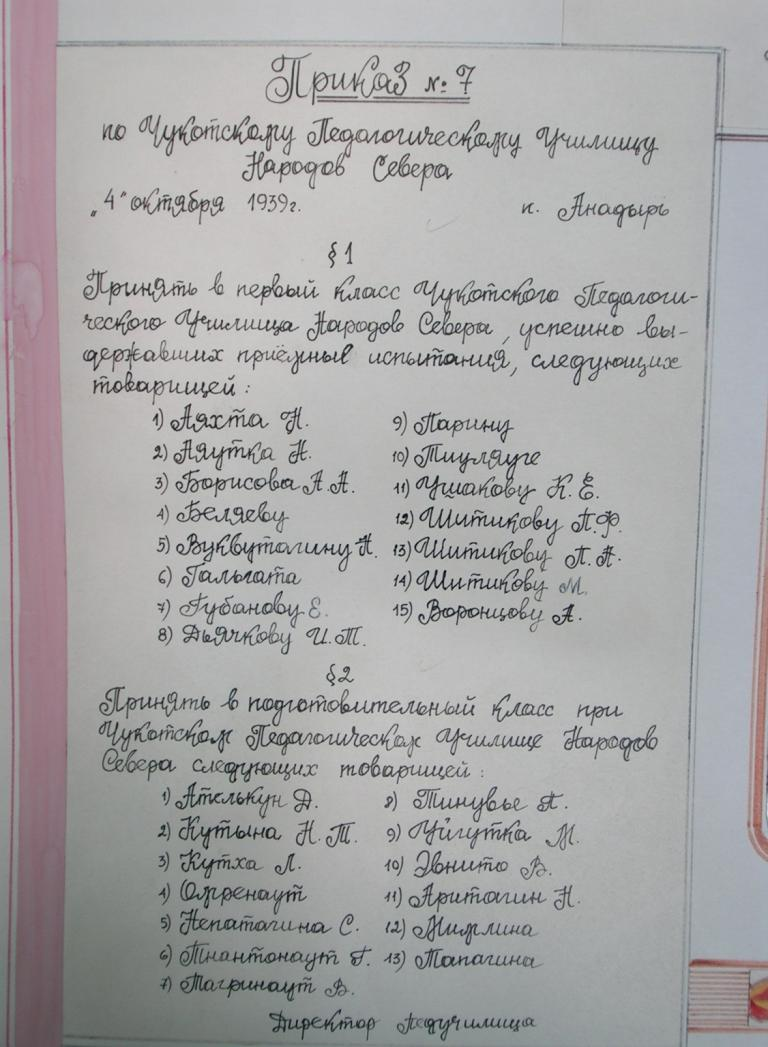 Приказ № 7
по Чукотскому Педагогическому Училищу
Народов Севера
„4" октября 1939г. п. Анадырь
§ 1
Принять в первый класс Чукотского Педагоги-
ческого Училища Народов Севера, успешно вы-
державших приёмные испытания, следующих
товарищей:
1) Аяхта Н.
2) Аяутка Н.
3) Борисова А.А.
4) Беляеву
5) Вуквутагину Н.
6) Гальгата
7) Губанову Е.
8) Дьячкову И.Т.
9) Парину
10) Тиуляуге
11) Ушакову К.Е.
12) Шитикову П.Ф.
13) Шитикову П.А.
14) Шитикову М.
15) Воронцову А.
§ 2
Принять в подготовительный класс при
Чукотском Педагогическом Училище Народов
Севера следующих товарищей:
1) Ателькун Д.
2) Кутына Н.Т.
3) Кутха Л.
4) Омренаут
5) Непатагина С.
6) Тнантонаут Г.
7) Тагринаут В.
8) Тинувье А.
9) Уйгутка М.
10) Эвнито В.
11) Аритагин Н.
12) Жимлина
13) Тапагина
Директор Педучилища